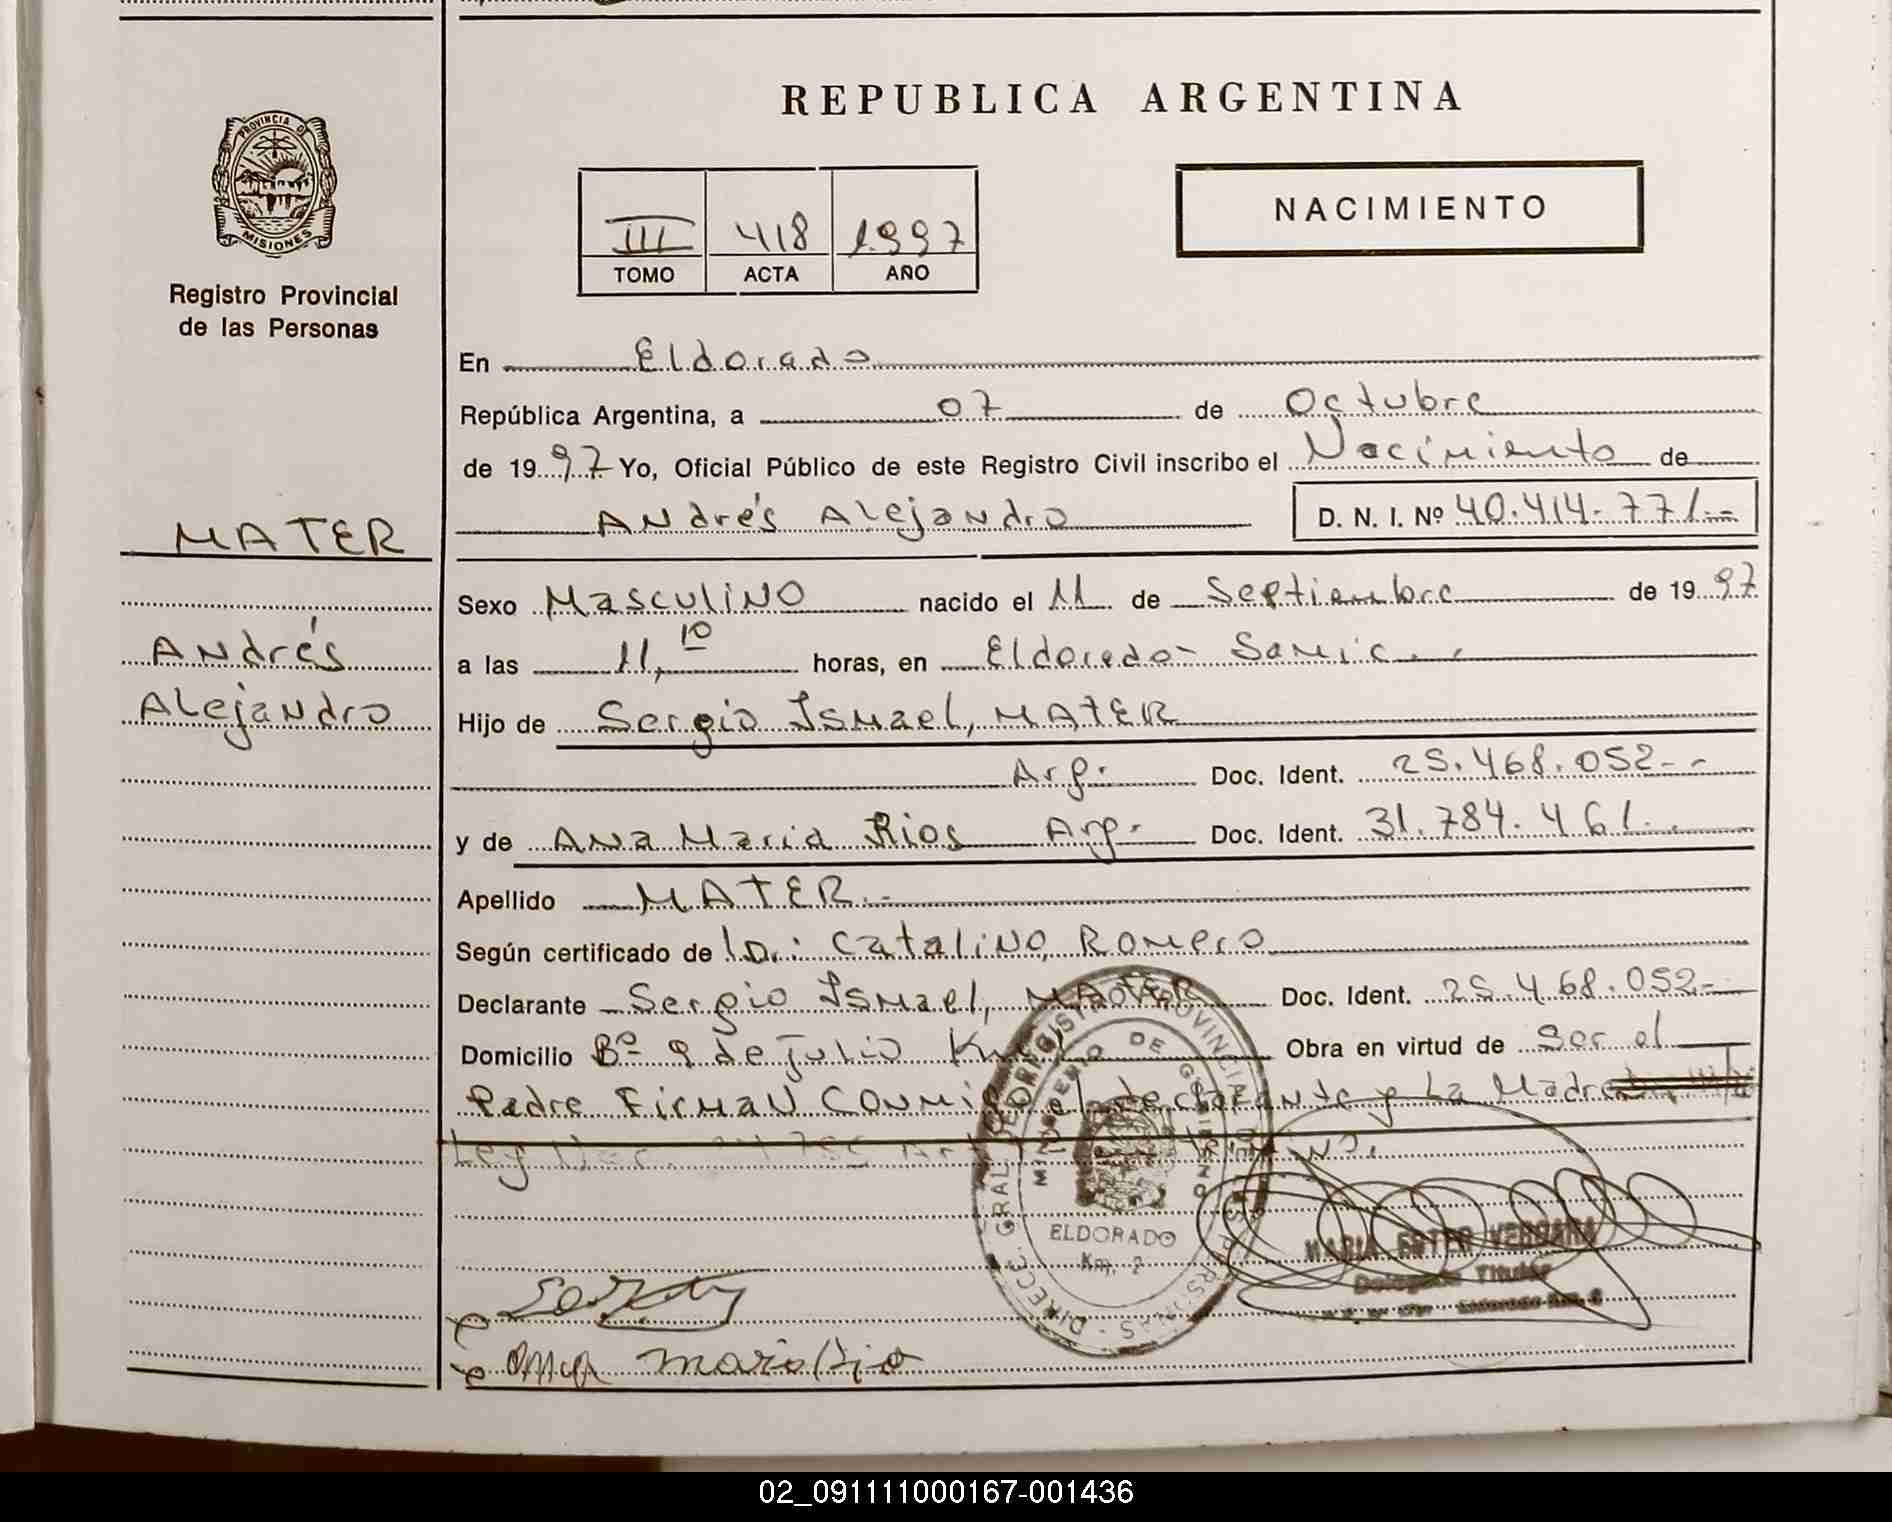 REPUBLICA ARGENTINA
PROVINCIA DE
MISIONES
Registro Provincial
de las Personas
III 418 1997
TOMO ACTA AÑO
NACIMIENTO
En Eldorado
República Argentina, a 07 de Octubre
de 1997 Yo, Oficial Público de este Registro Civil inscribo el Nacimiento de
Andrés Alejandro D. N. I. Nº 40.414.771.-
MATER
Andrés
Alejandro
Sexo Masculino nacido el 11 de Septiembre de 1997
a las 11,10 horas, en Eldorado- Samic..
Hijo de Sergio Ismael, MATER
Arg. Doc. Ident. 25.468.052.-
y de Ana Maria Rios Arg. Doc. Ident. 31.784.461.
Apellido MATER.-
Según certificado de Dr: Catalino, Romero
Declarante Sergio Ismael, MATER Doc. Ident. 25.468.052.-
Domicilio Bº 9 de Julio Obra en virtud de Ser el
Padre Firman Conmigo el declarante y La Madre
Ley
MINISTERIO DE GOBIERNO
ELDORADO
Km. 2
MARIA ESTER VERGARA
Delegada Titular
02_091111000167-001436